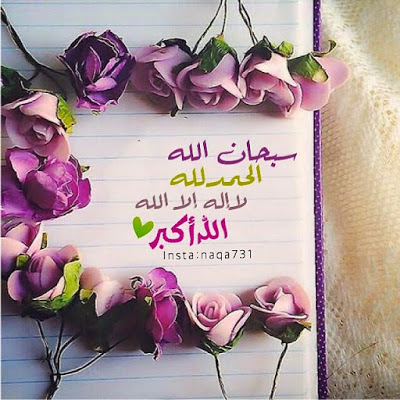 سبحان الله
الحمدلله
لا اله إلا الله
الله أكبر
Insta:naqa731